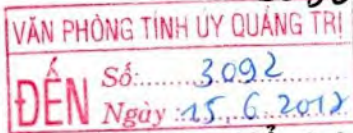 VĂN PHÒNG TỈNH ỦY QUẢNG TRỊ
ĐẾN
Số:........3092........
Ngày:15.6.2012